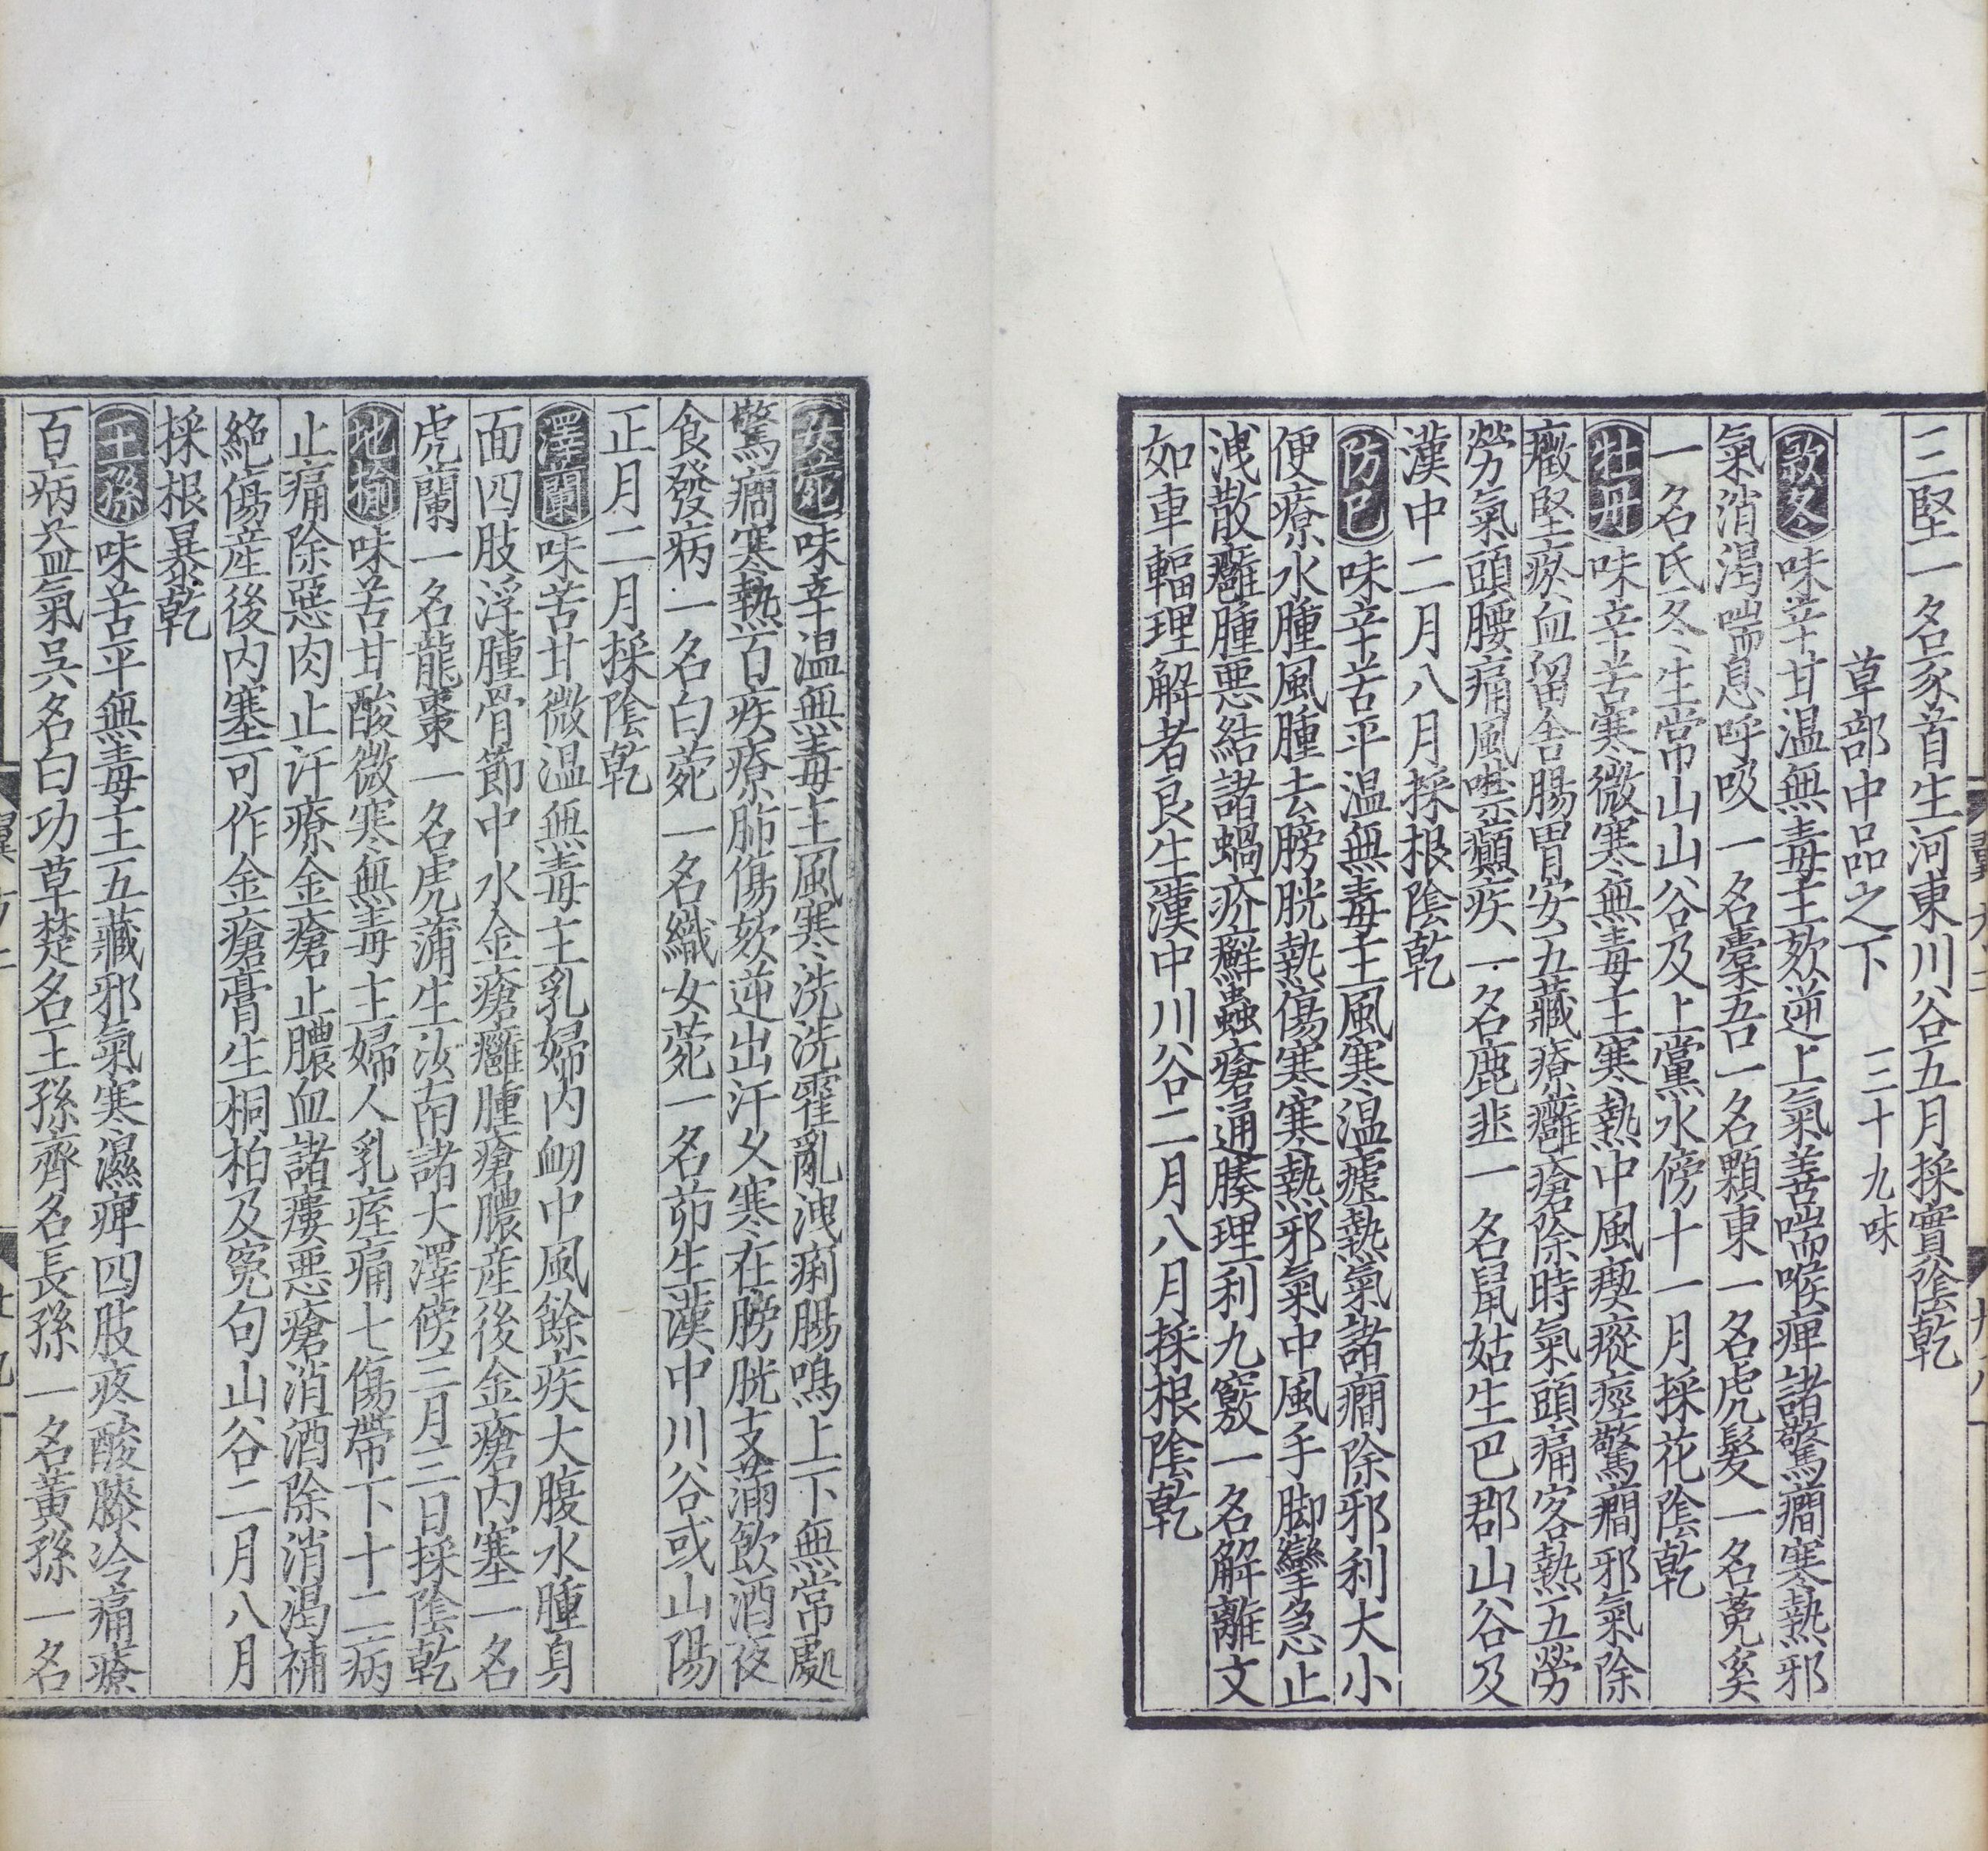 三堅一名豕首生河東川谷五月採實陰乾
草部中品之下 三十九味
款冬味辛甘温無毒主欬逆上氣善喘喉痺諸驚癇寒熱邪
氣消渴喘息呼吸一名橐吾一名顆東一名虎鬚一名菟奚
一名氐冬生常山山谷及上黨水傍十一月採花陰乾
牡丹味辛苦寒微寒無毒主寒熱中風瘈瘲痙驚癇邪氣除
癥堅瘀血留舍腸胃安五藏療癰瘡除時氣頭痛客熱五勞
勞氣頭腰痛風噤癲疾一名鹿韭一名鼠姑生巴郡山谷及
漢中二月八月採根陰乾
防己味辛苦平温無毒主風寒温瘧熱氣諸癇除邪利大小
便療水腫風腫去膀胱熱傷寒寒熱邪氣中風手脚攣急止
洩散癰腫惡結諸蝸疥癬蟲瘡通腠理利九竅一名解離文
如車輻理解者良生漢中川谷二月八月採根陰乾
女菀味辛温無毒主風寒洗洗霍亂洩痢腸鳴上下無常處
驚癇寒熱百疾療肺傷欬逆出汗久寒在膀胱支滿飲酒夜
食發病一名白菀一名織女菀一名茆生漢中川谷或山陽
正月二月採陰乾
澤蘭味苦甘微温無毒主乳婦内衂中風餘疾大腹水腫身
面四肢浮腫骨節中水金瘡癰腫瘡膿産後金瘡内塞一名
虎蘭一名龍棗一名虎蒲生汝南諸大澤傍三月三日採陰乾
地榆味苦甘酸微寒無毒主婦人乳痓痛七傷帶下十二病
止痛除惡肉止汗療金瘡止膿血諸瘻惡瘡消酒除消渴補
絶傷産後内塞可作金瘡膏生桐柏及寃句山谷二月八月
採根暴乾
王孫味苦平無毒主五藏邪氣寒濕痺四肢疼酸膝冷痛療
百病益氣吳名白功草楚名王孫齊名長孫一名黃孫一名